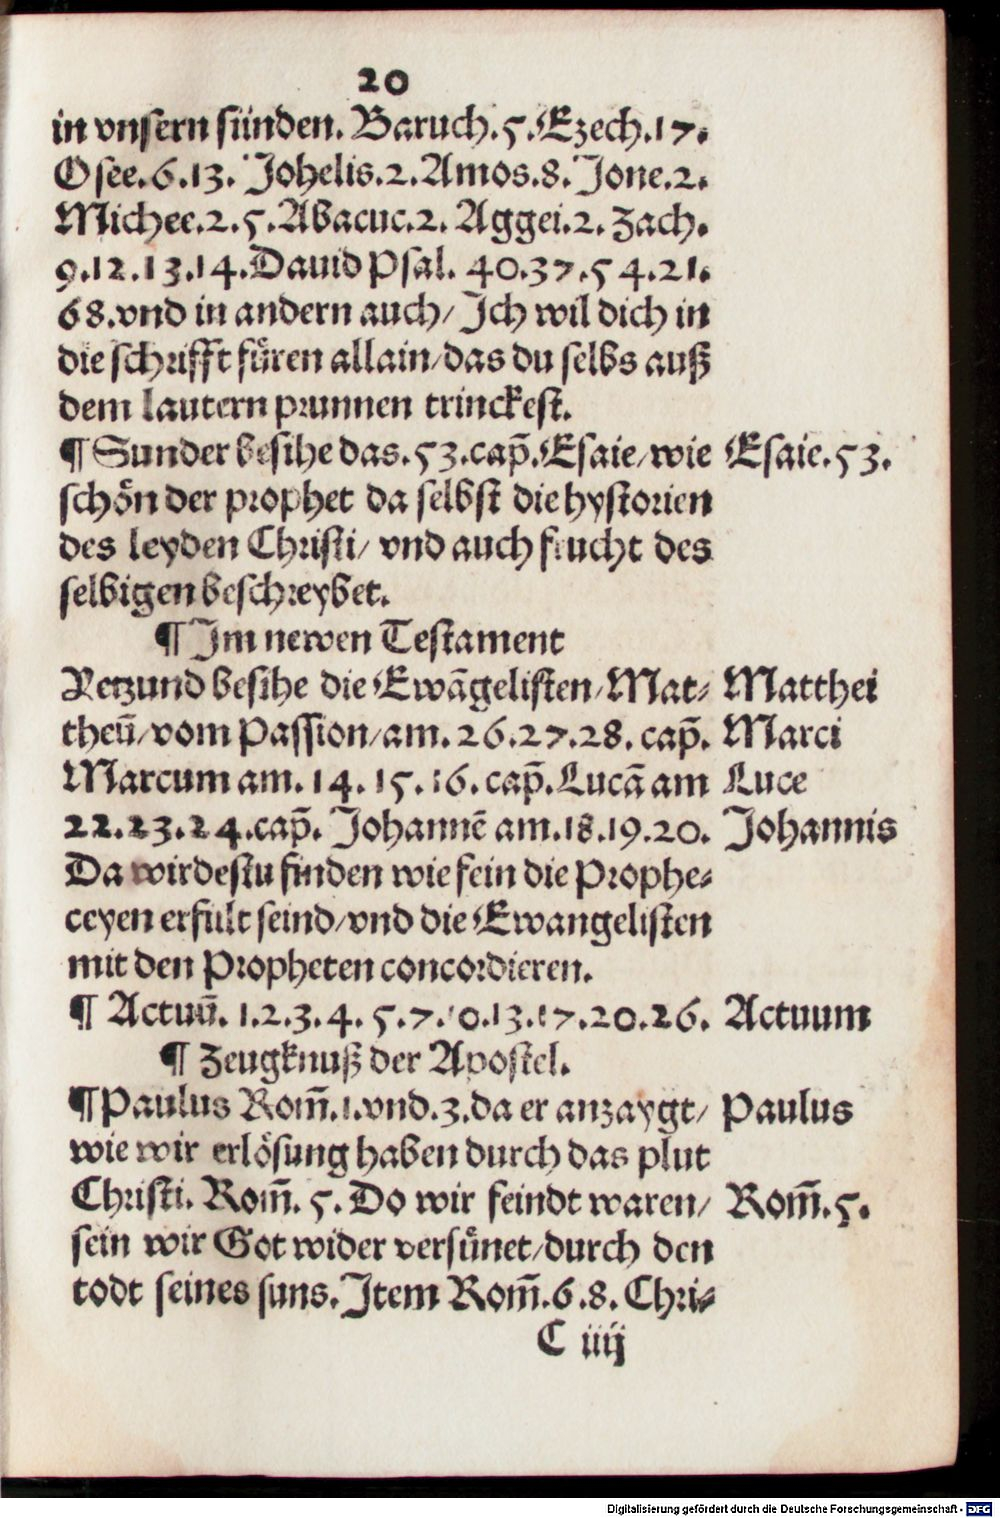 20
in vnsern sünden. Baruch.5.Ezech.17.
Osee.6.13. Johelis.2.Amos.8.Jone.2.
Michee.2.5.Abacuc.2. Aggei.2. Zach.
9.12.13.14.Dauid Psal. 40.37.54.21.
68.vnd in andern auch/ Ich wil dich in
die schrifft fůren allain/das du selbs auß
dem lautern prunnen trinckest.
¶ Sunder besihe das.53.cap̃.Esaie/wie Esaie.53.
schoͤn der prophet da selbst die hystorien
des leyden Christi/ vnd auch frucht des
selbigen beschreybet.
¶ Im newen Testament
Yetzund besihe die Ewãgelisten/Mat⸗ Matthei
theũ/vom Passion/am.26.27.28. cap̃. Marci
Marcum am.14.15.16.cap̃.Lucã am Luce
22.23.24.cap̃. Johannẽ am.18.19.20. Johannis
Da wirdestu finden wie fein die Prophe⸗
ceyen erfült seind/vnd die Ewangelisten
mit den Propheten concordieren.
¶ Actuũ.1.2.3.4.5.7.10.13.17.20.26. Actuum
¶ Zeugknuß der Apostel.
¶ Paulus Rom̃.1.vnd.3.da er anzaygt/ Paulus
wie wir erloͤsung haben durch das plut
Christi. Rom̃. 5. Do wir feindt waren/ Rom̃.5.
sein wir Got wider versünet/durch den
todt seines suns. Item Rom̃.6.8. Chri⸗
C iiij
Digitalisierung gefördert durch die Deutsche Forschungsgemeinschaft - DFG